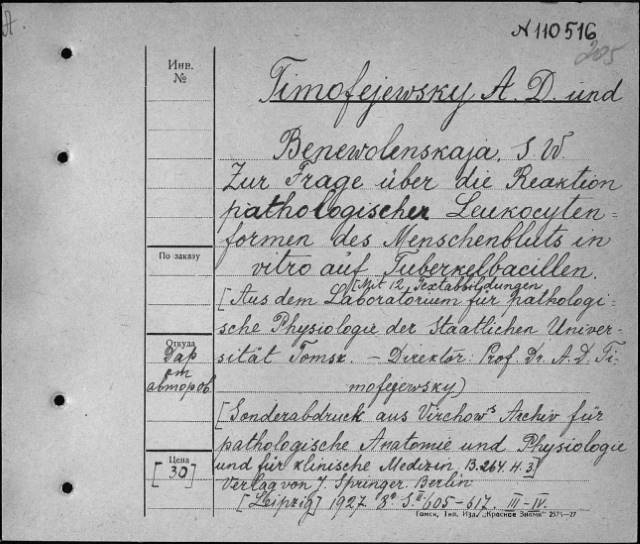 A.
N 110516
205
Инв.
№
Timofejewsky A. D. und
Benewolenskaja, S. W.
Zur Frage über die Reaktion
pathologischer Leukocyten=
formen des Menschenbluts in
vitro auf Tuberkelbacillen.
[Mit 12 Textabbildungen
[Aus dem Laboratorium für pathologi-
sche Physiologie der Staatlichen Univer-
sität Tomsk. – Direktor: Prof. Dr. A. D. Ti-
mofejewsky)
[Sonderabdruck aus Virchow's Archiv für
pathologische Anatomie und Physiologie
und für klinische Medizin B. 264. H. 3]
Verlag von J. Springer. Berlin
[Leipzig] 1927 8° S. 605–617. III–IV.
По заказу
Откуда
Дар
от
авторов.
Цена
[30]
Томск, Тип. Изд. „Красное Знамя" 2575—27